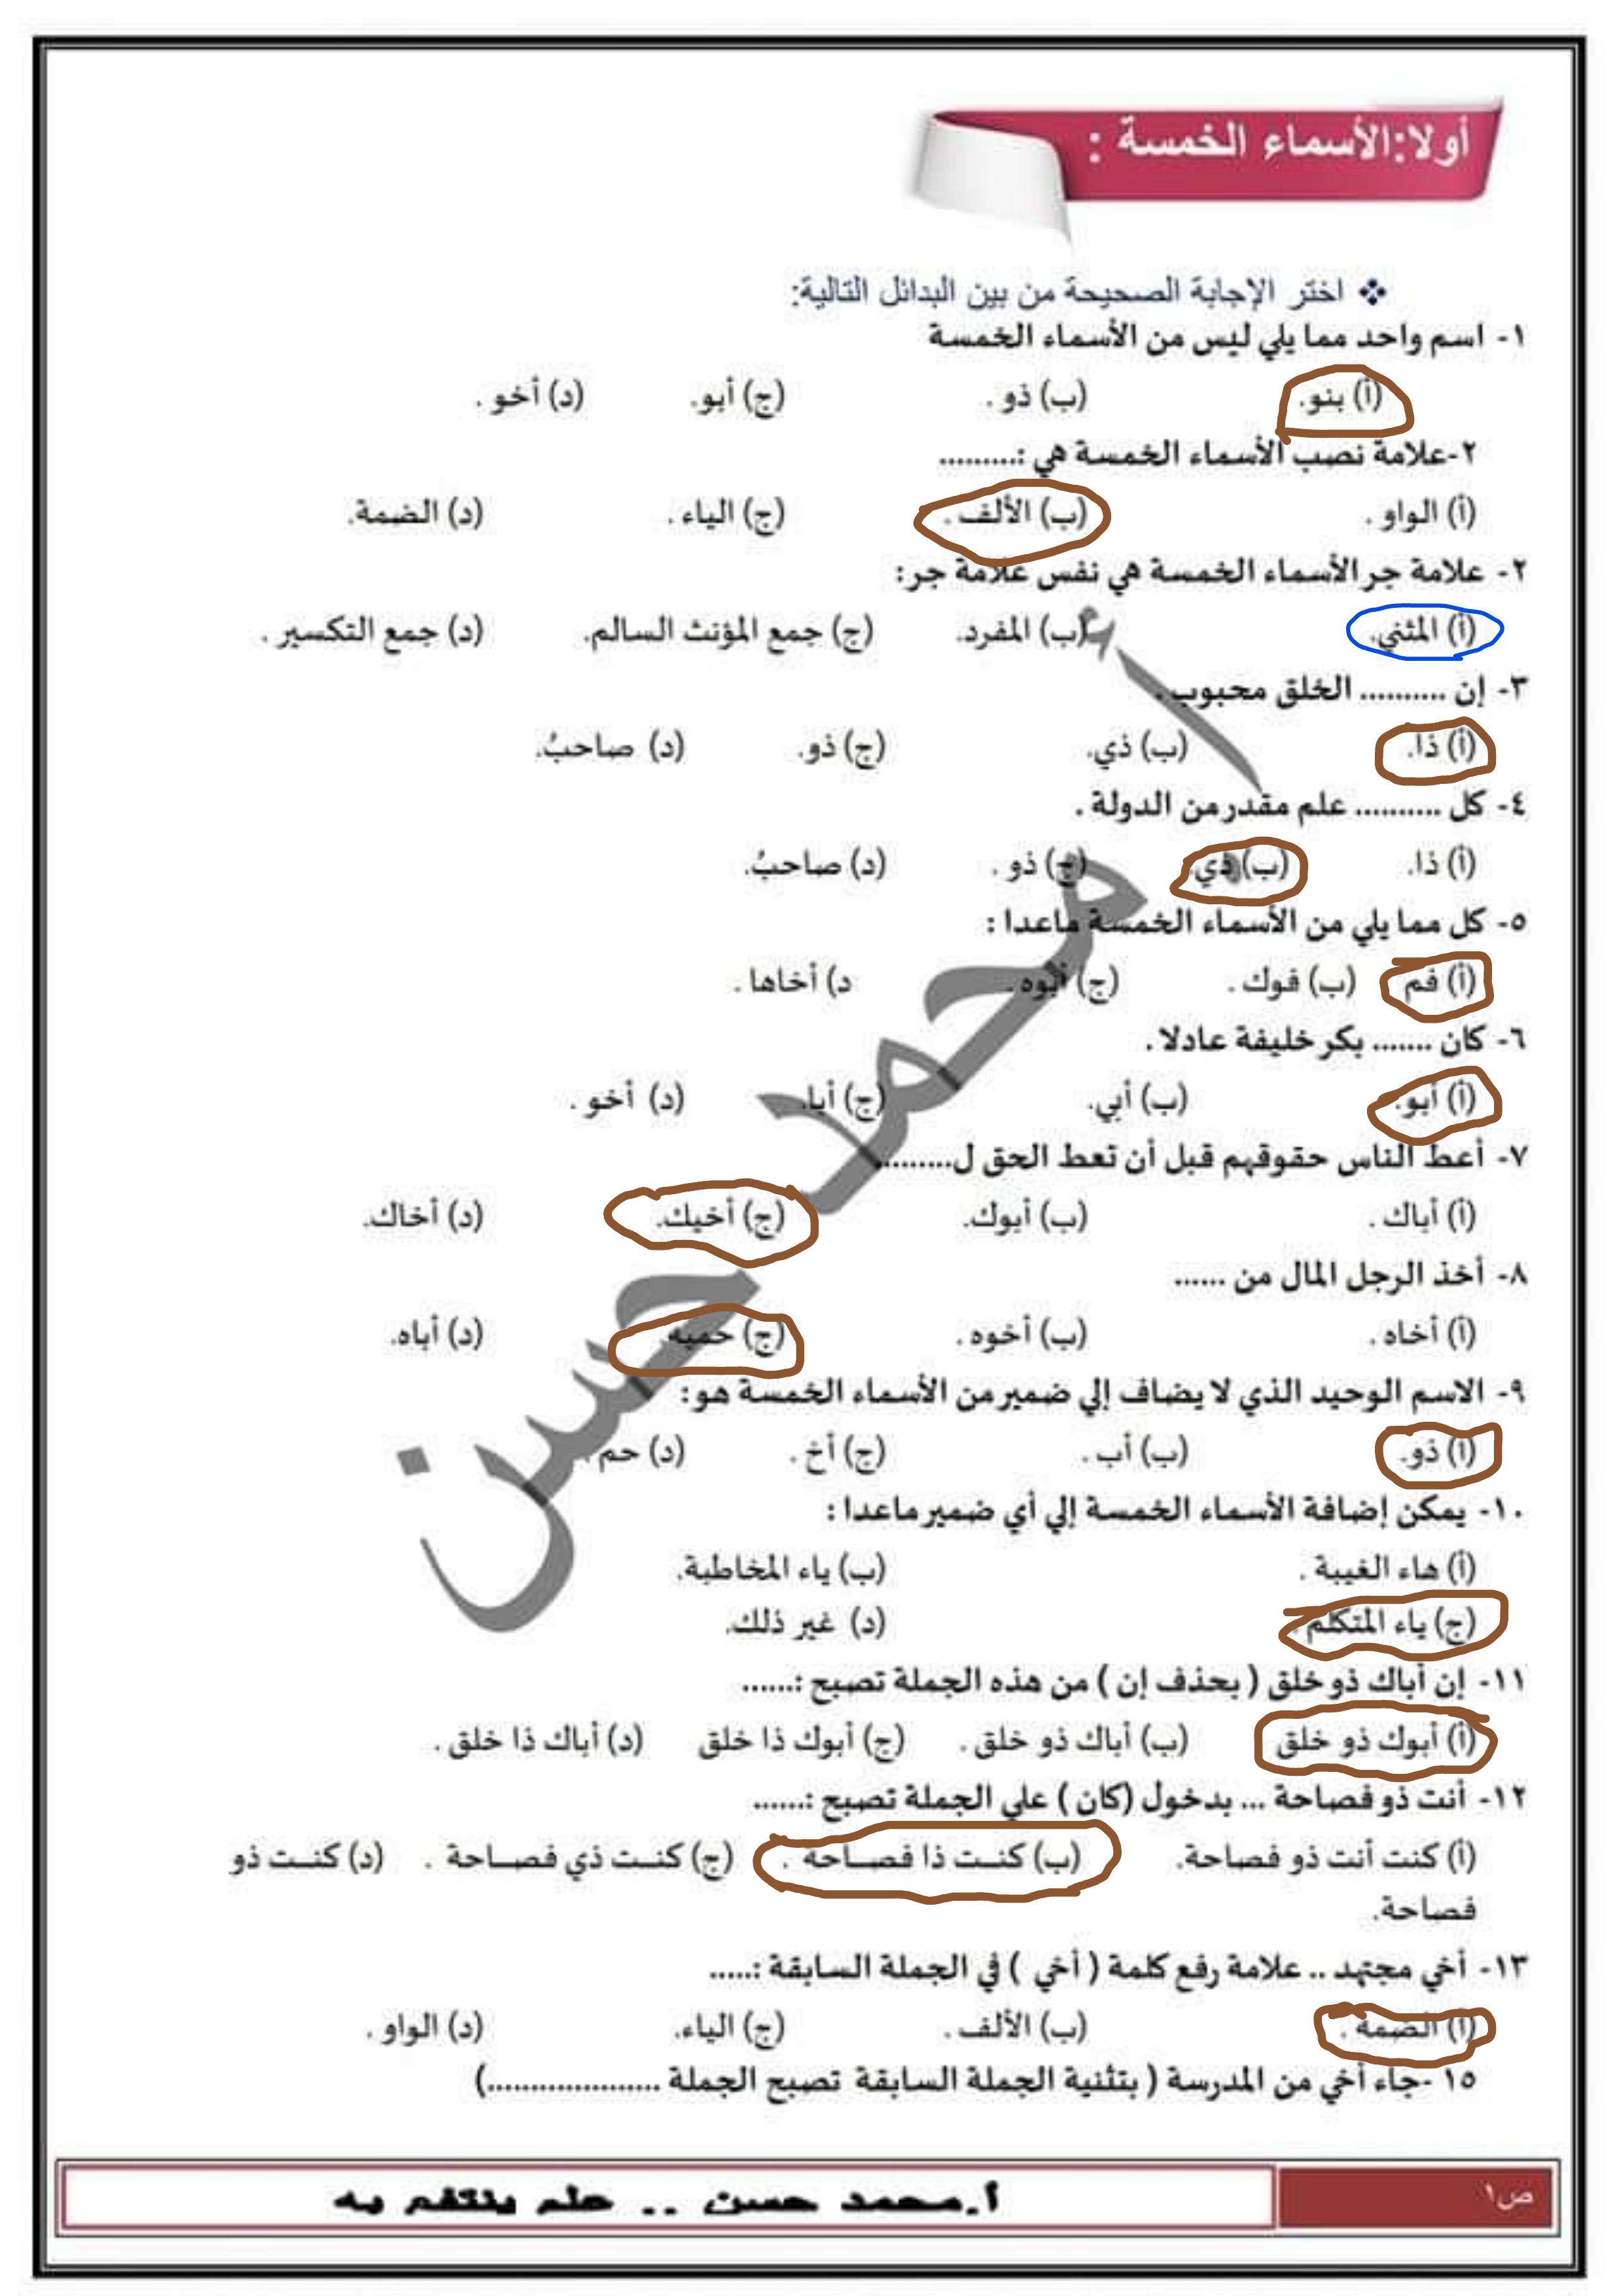 أولا:الأسماء الخمسة :
❖ اختر الإجابة الصحيحة من بين البدائل التالية:
١- اسم واحد مما يلي ليس من الأسماء الخمسة
(أ) بنو. (ب) ذو . (ج) أبو. (د) أخو .
٢-علامة نصب الأسماء الخمسة هي :.........
(أ) الواو . (ب) الألف . (ج) الياء . (د) الضمة.
٢- علامة جر الأسماء الخمسة هي نفس علامة جر:
(أ) المثني. (ب) المفرد. (ج) جمع المؤنث السالم. (د) جمع التكسير .
٣- إن .......... الخلق محبوب .
(أ) ذا. (ب) ذي. (ج) ذو. (د) صاحبُ.
٤- كل .......... علم مقدر من الدولة .
(أ) ذا. (ب) ذي. (ج) ذو . (د) صاحبُ.
٥- كل مما يلي من الأسماء الخمسة ماعدا :
(أ) فم (ب) فوك . (ج) أبوه . د) أخاها .
٦- كان ....... بكر خليفة عادلا .
(أ) أبو. (ب) أبي. (ج) أبا. (د) أخو .
٧- أعط الناس حقوقهم قبل أن تعط الحق ل.........
(أ) أباك . (ب) أبوك. (ج) أخيك. (د) أخاك.
٨- أخذ الرجل المال من ......
(أ) أخاه . (ب) أخوه . (ج) حميه. (د) أباه.
٩- الاسم الوحيد الذي لا يضاف إلي ضمير من الأسماء الخمسة هو:
(أ) ذو. (ب) أب . (ج) أخ . (د) حم .
١٠- يمكن إضافة الأسماء الخمسة إلي أي ضمير ماعدا :
(أ) هاء الغيبة . (ب) ياء المخاطبة.
(ج) ياء المتكلم . (د) غير ذلك.
١١- إن أباك ذو خلق ( بحذف إن ) من هذه الجملة تصبح :......
(أ) أبوك ذو خلق (ب) أباك ذو خلق . (ج) أبوك ذا خلق (د) أباك ذا خلق .
١٢- أنت ذو فصاحة ... بدخول (كان ) علي الجملة تصبح :......
(أ) كنت أنت ذو فصاحة. (ب) كنت ذا فصاحة . (ج) كنت ذي فصاحة . (د) كنت ذو
فصاحة.
١٣- أخي مجتهد .. علامة رفع كلمة ( أخي ) في الجملة السابقة :.....
(أ) الضمة . (ب) الألف . (ج) الياء. (د) الواو .
١٥ -جاء أخي من المدرسة ( بتثنية الجملة السابقة تصبح الجملة ....................)
أ / محمد حسن
ص١
أ.محمد حسن .. علم ينتفع به